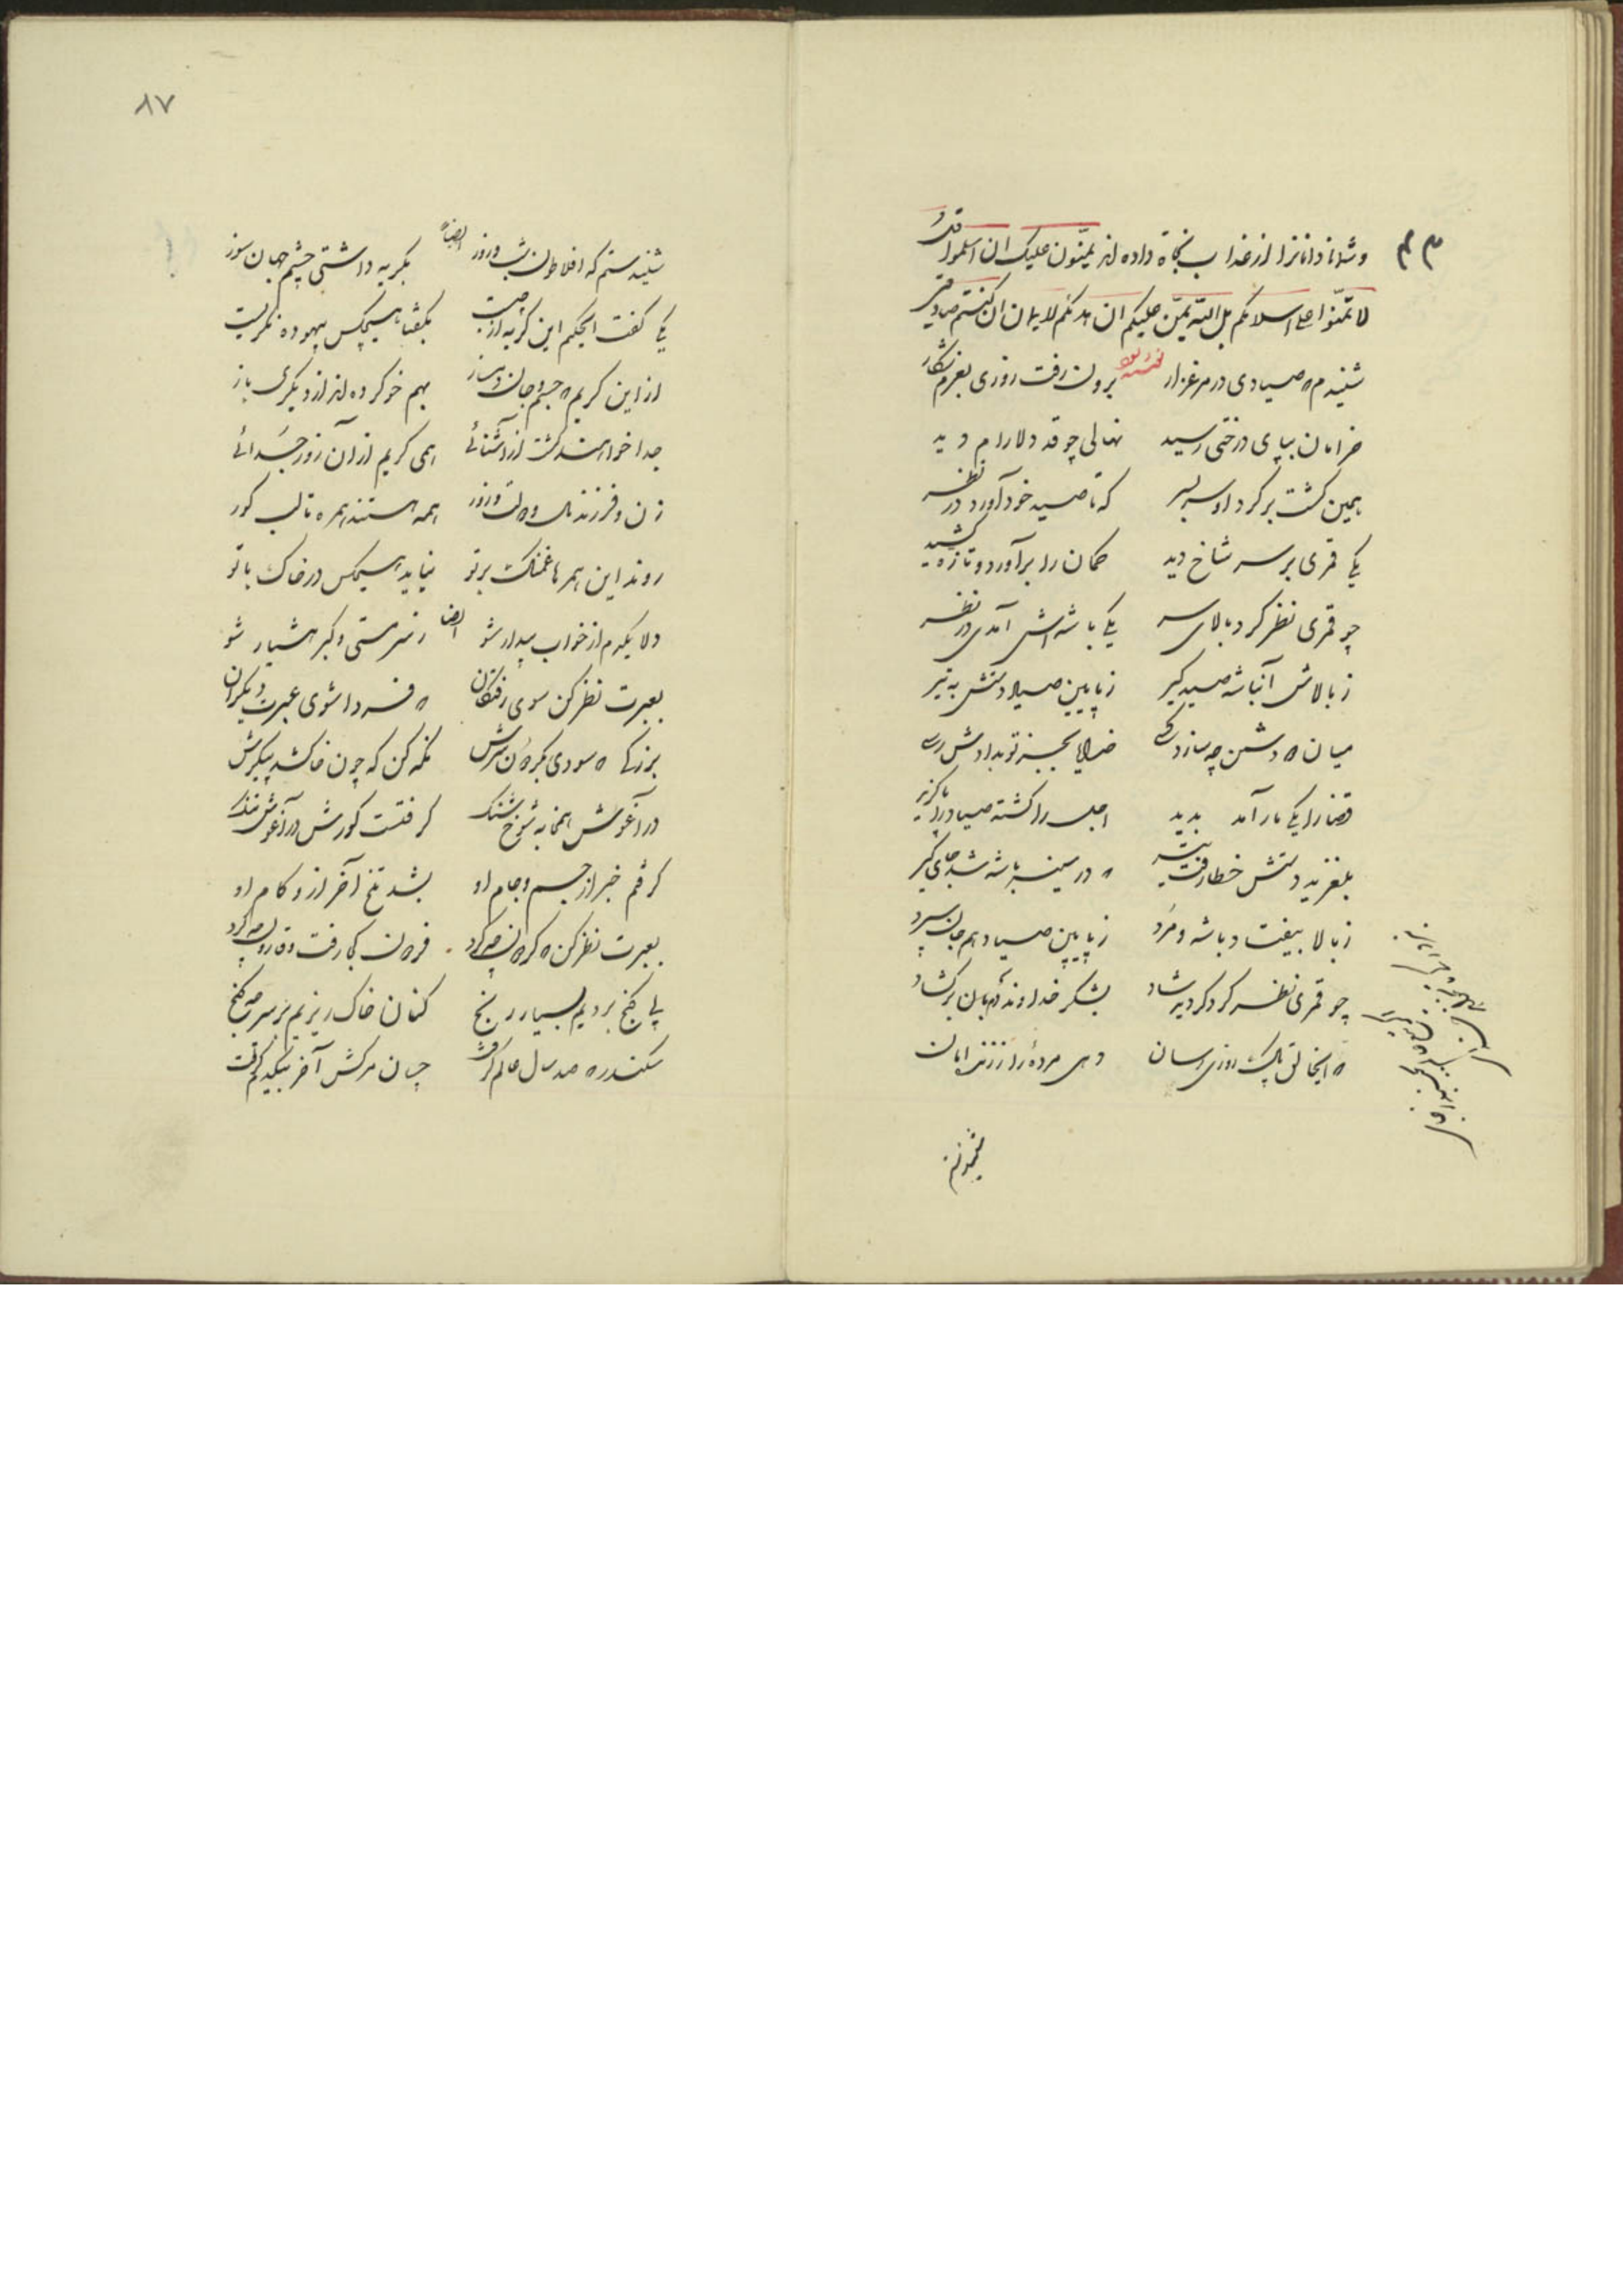 و شما را از عذاب نجاة داده اند یمنّون علیک ان اسلموا قل
لا تمنّوا علی اسلامکم بل الله یمنّ علیکم ان هدیکم للایمان ان کنتم صادقین
شنیدم که صیادی در مرغزار برون رفت روزی بعزم شکار
خرامان بپای درختی رسید نهالی چو قد دلارام دید
همین گشت بر گرد او سر بسر که تا صید خود آورد در نظر
یکی قمری بر سر شاخ دید کمان را برآورد و تا زه کشید
چو قمری نظر کرد بالای سر یکی باشه اش آمدی در نظر
ز بالاش آن باشه صید گیر ز پایین صیاد دستش به تیر
میان دو دشمن چه سازد کسی خدایا بجز تو بدادش رسی
قضا را یکی مار آمد پدید اجل را کشته صیاد را
بلغزید دستش خطا رفت تیر که در سینه باشه شد جای گیر
ز بالا بیفتاد باشه و مرد ز پایین صیاد هم جان سپرد
چو قمری نظر کرد گردید شاد بشکر خداوند دهان برگشاد
که ای خالق پاک روزی رسان دهی مرده را از زندان
۸۷
شنیدستم که افلاطون شب و روز ایضاً بگریه داشتی چشم جهان سوز
یکی گفت ای حکیم این گریه از چیست بگفتا هیچکس بیهوده نگریست
از این گریم که جسم و جان دمساز بهم خو کرده اند از دیگری باز
جدا خواهند گشت از آشنائی همی گریم از آن روز جدائی
زن و فرزند و مال و دولت و زور همه هستند همره تا لب گور
روند این همرهان غمناک بر تو نیاید هیچکس در خاک با تو
دلا یکدم از خواب بیدار شو ایضا ز سر مستی و کبر هشیار شو
بعبرت نظر کن سوی رفتگان که فردا شوی عبرت دیگران
بزرگی که سودی بگردون سرش نگه کن که چون خاک شد پیکرش
در آغوش همخوابه شوخ شنگ گرفتست گورش در آغوش تنگ
گرفتم خبر از جسم و جام او بشد تلخ آخر از و کام او
بعبرت نظر کن که گردون چه کرد فریدون کجا رفت و قارون چه کرد
پی گنج بردیم بسیار رنج کنان خاک ریزیم بر سر چه گنج
سکندر که صد سال عالم گرفت چنان مرگش آخر بیکدم گرفت